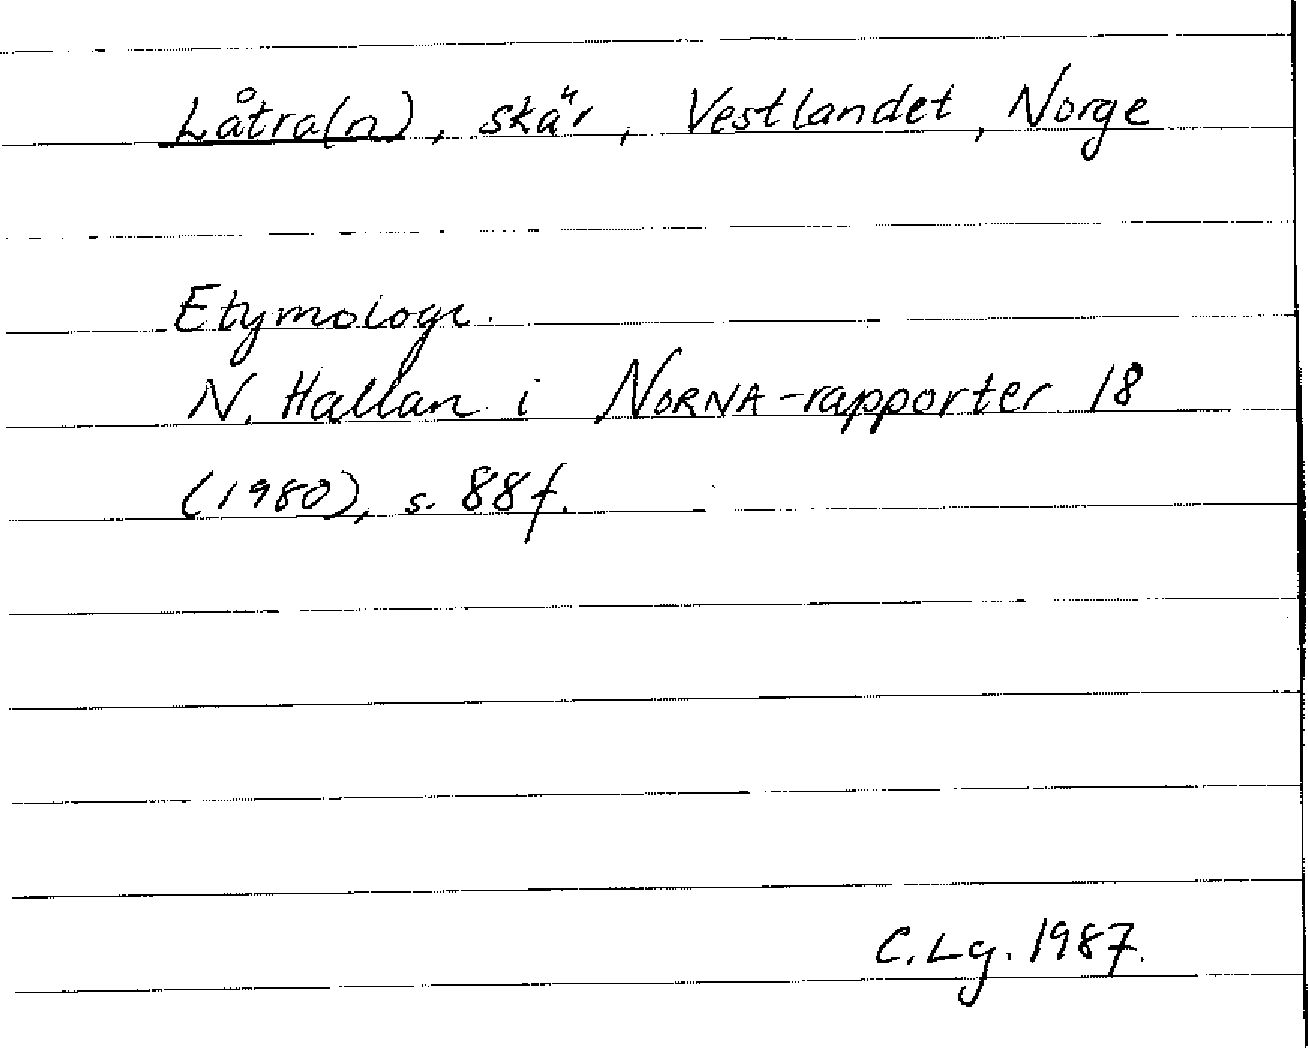 Låtra(n), skär, Vestlandet, Norge
Etymologi.
N. Hallan i NORNA-rapporter 18
(1980), s. 88f.
C. Lg. 1987.